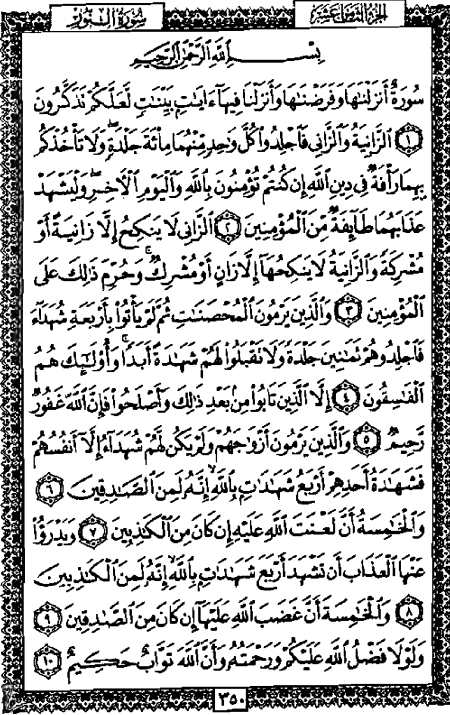 سُورَةُ النُّورِ الجُزْءُ الثَّامِنَ عَشَرَ
بِسْمِ اللَّهِ الرَّحْمَٰنِ الرَّحِيمِ
سُورَةٌ أَنزَلْنَٰهَا وَفَرَضْنَٰهَا وَأَنزَلْنَا فِيهَآ ءَايَٰتٍۭ بَيِّنَٰتٍ لَّعَلَّكُمْ تَذَكَّرُونَ
١ ٱلزَّانِيَةُ وَٱلزَّانِي فَٱجْلِدُوا۟ كُلَّ وَٰحِدٍ مِّنْهُمَا مِا۟ئَةَ جَلْدَةٍ ۖ وَلَا تَأْخُذْكُم
بِهِمَا رَأْفَةٌ فِي دِينِ ٱللَّهِ إِن كُنتُمْ تُؤْمِنُونَ بِٱللَّهِ وَٱلْيَوْمِ ٱلْأَخِرِ ۖ وَلْيَشْهَدْ
عَذَابَهُمَا طَآئِفَةٌ مِّنَ ٱلْمُؤْمِنِينَ ٢ ٱلزَّانِي لَا يَنكِحُ إِلَّا زَانِيَةً أَوْ
مُشْرِكَةً وَٱلزَّانِيَةُ لَا يَنكِحُهَآ إِلَّا زَانٍ أَوْ مُشْرِكٌ ۚ وَحُرِّمَ ذَٰلِكَ عَلَى
ٱلْمُؤْمِنِينَ ٣ وَٱلَّذِينَ يَرْمُونَ ٱلْمُحْصَنَٰتِ ثُمَّ لَمْ يَأْتُوا۟ بِأَرْبَعَةِ شُهَدَآءَ
فَٱجْلِدُوهُمْ ثَمَٰنِينَ جَلْدَةً وَلَا تَقْبَلُوا۟ لَهُمْ شَهَٰدَةً أَبَدًا ۚ وَأُو۟لَٰٓئِكَ هُمُ
ٱلْفَٰسِقُونَ ٤ إِلَّا ٱلَّذِينَ تَابُوا۟ مِنۢ بَعْدِ ذَٰلِكَ وَأَصْلَحُوا۟ فَإِنَّ ٱللَّهَ غَفُورٌ
رَّحِيمٌ ٥ وَٱلَّذِينَ يَرْمُونَ أَزْوَٰجَهُمْ وَلَمْ يَكُن لَّهُمْ شُهَدَآءُ إِلَّآ أَنفُسُهُمْ
فَشَهَٰدَةُ أَحَدِهِمْ أَرْبَعُ شَهَٰدَٰتٍۭ بِٱللَّهِ ۙ إِنَّهُۥ لَمِنَ ٱلصَّٰدِقِينَ ٦
وَٱلْخَٰمِسَةُ أَنَّ لَعْنَتَ ٱللَّهِ عَلَيْهِ إِن كَانَ مِنَ ٱلْكَٰذِبِينَ ٧ وَيَدْرَؤُا۟
عَنْهَا ٱلْعَذَابَ أَن تَشْهَدَ أَرْبَعَ شَهَٰدَٰتٍۭ بِٱللَّهِ ۙ إِنَّهُۥ لَمِنَ ٱلْكَٰذِبِينَ
٨ وَٱلْخَٰمِسَةَ أَنَّ غَضَبَ ٱللَّهِ عَلَيْهَآ إِن كَانَ مِنَ ٱلصَّٰدِقِينَ ٩
وَلَوْلَا فَضْلُ ٱللَّهِ عَلَيْكُمْ وَرَحْمَتُهُۥ وَأَنَّ ٱللَّهَ تَوَّابٌ حَكِيمٌ ١٠
٣٥٠